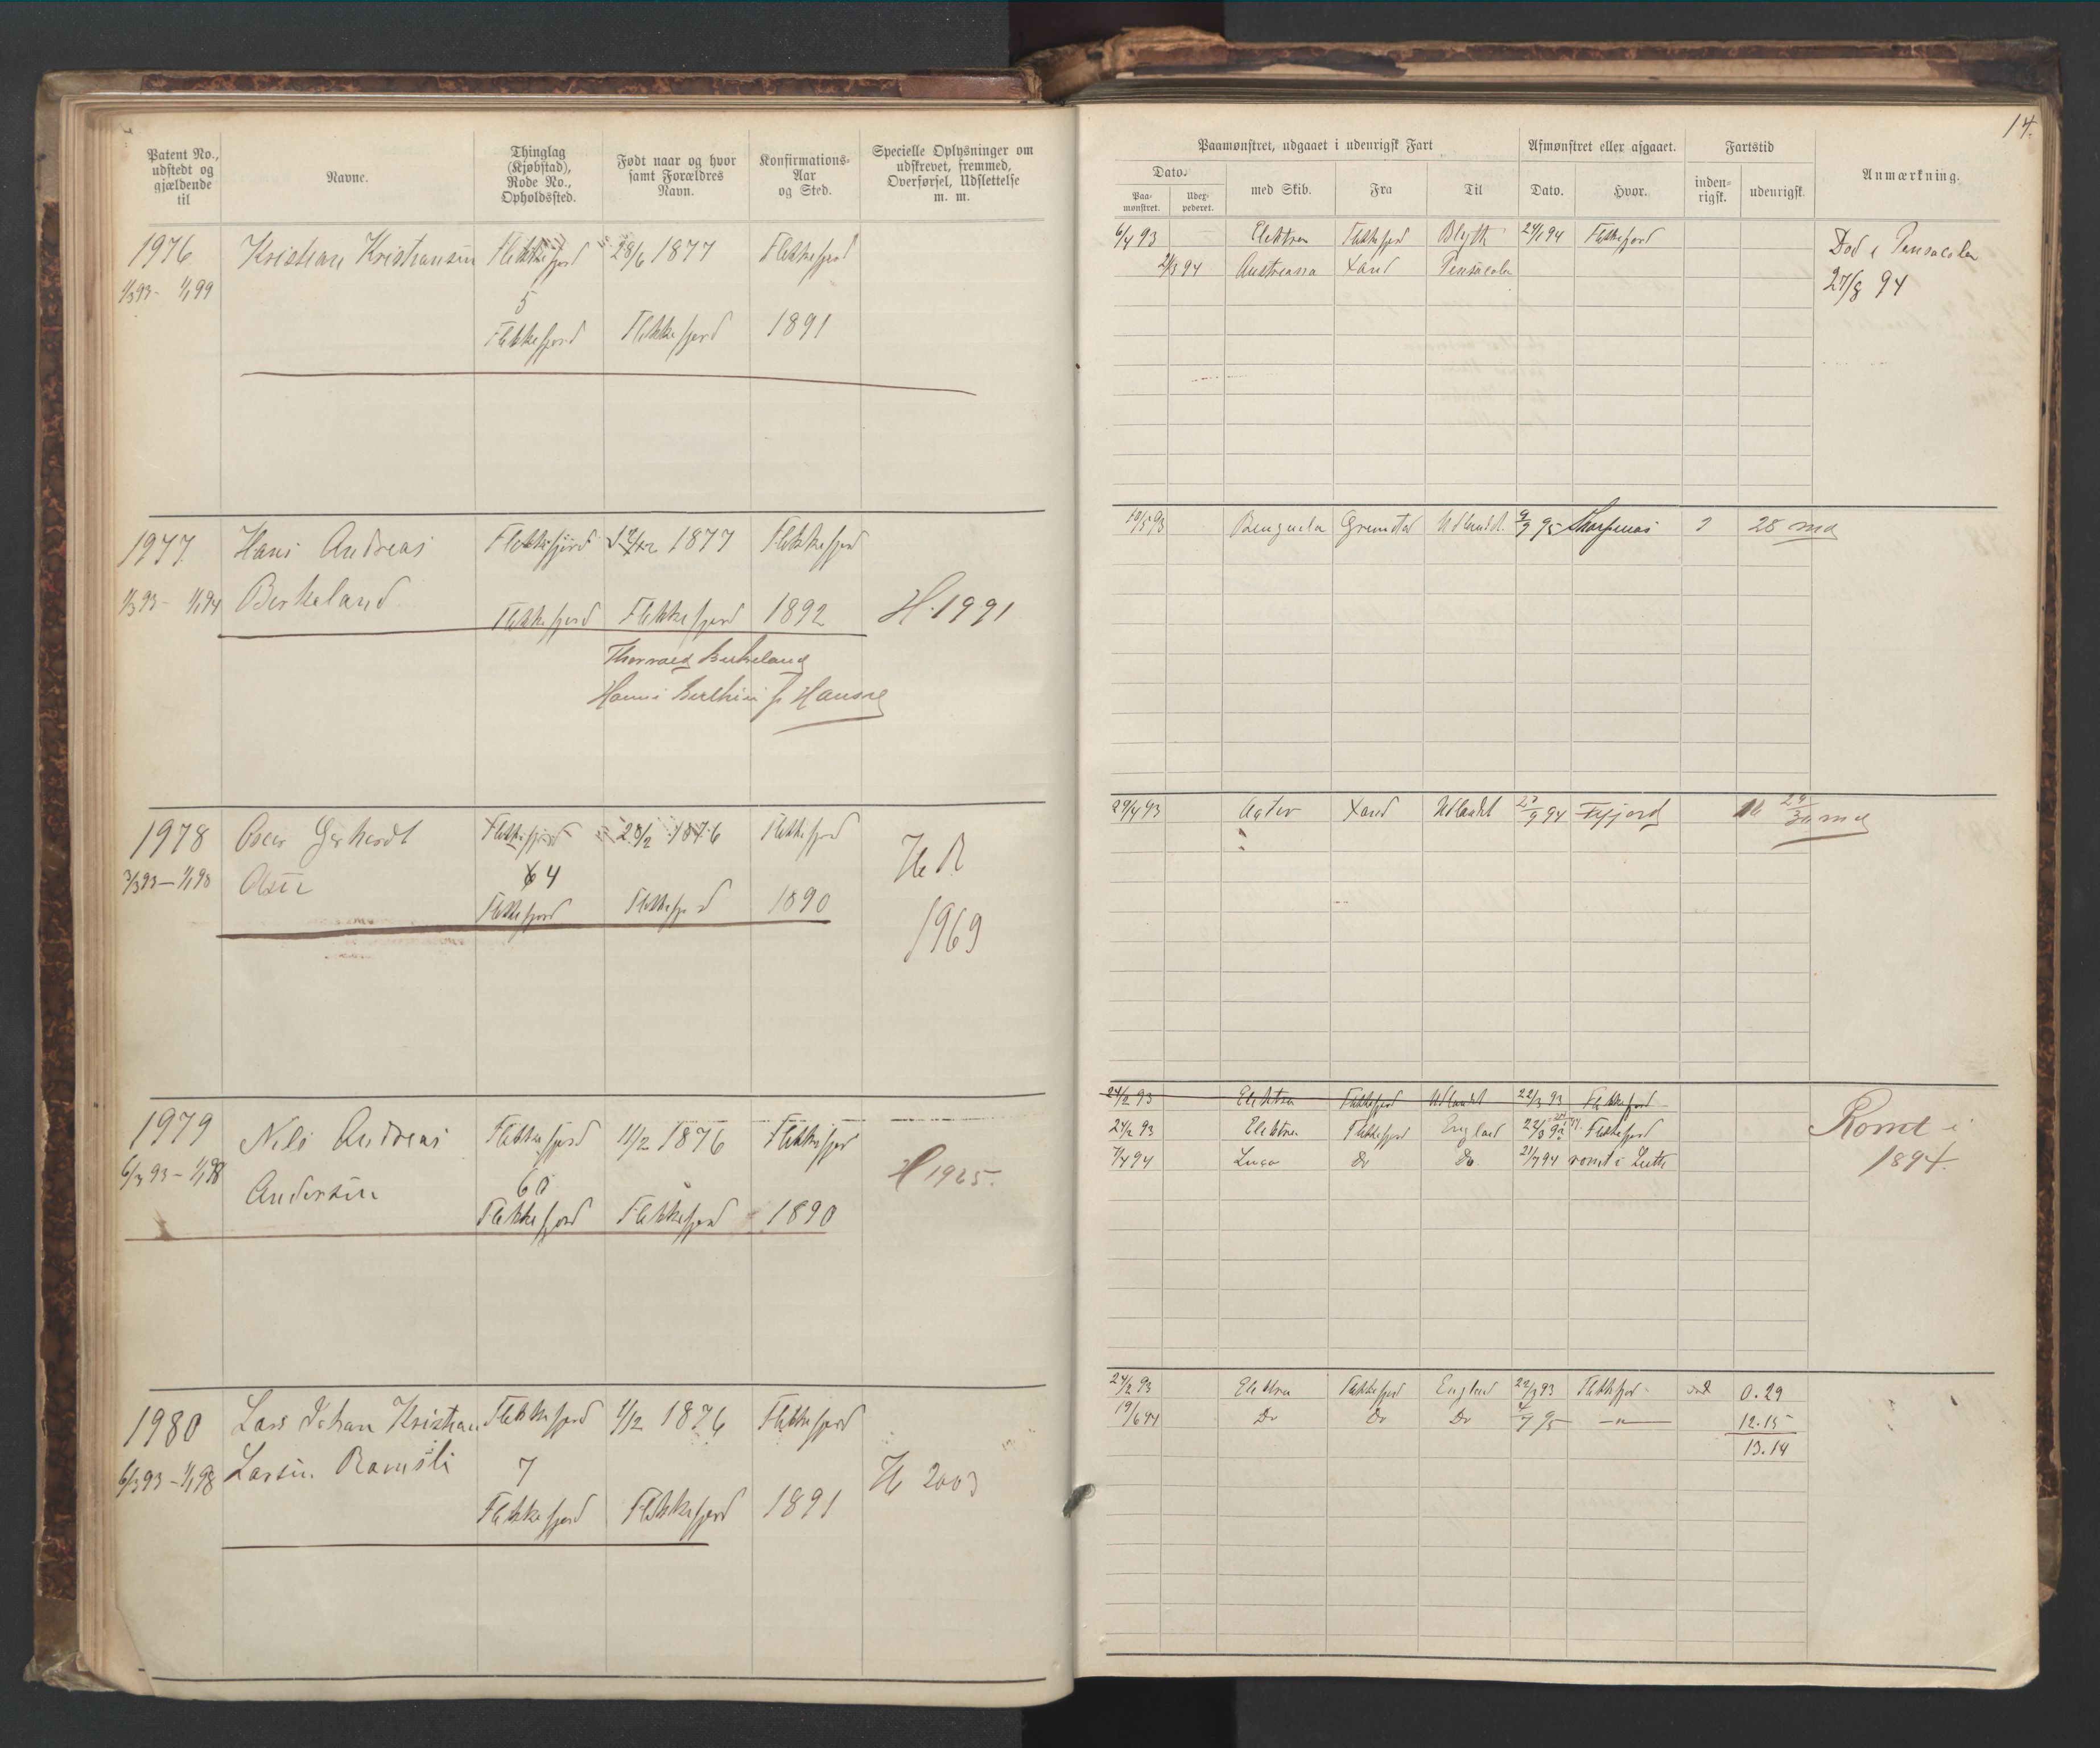 14.
Patent No., udstedt og gjældende til
Navne.
Thinglag (Kjøbstad), Rode No., Opholdssted.
Født naar og hvor samt Forældres Navn.
Konfirmations-Aar og Sted.
Specielle Oplysninger om udskrevet, fremmed, Overførsel, Udslettelse m. m.
Paamønstret, udgaaet i udenrigsk Fart
Afmønstret eller afgaaet.
Fartstid
Anmærkning.
Dato.
Paa-mønstret.
Udex-pederet.
med Skib.
Fra
Til
Dato.
Hvor.
inden-rigsk.
udenrigsk.
1976 Kristian Kristiansen Flekkefjord 28/6 1877 Flekkefjord
1/3 93 - 1/1 99
5
Flekkefjord Flekkefjord 1891
6/4 93 Elektra Flekkefjord Blyth 24/1 94 Flekkefjord
21/3 94 Austreana Xsand Pensacola
Død i Pensacola
27/8 94
1977 Hans Andreas Flekkefjord 1877 Flekkefjord
1/3 93 - 1/1 94 Birkeland
Flekkefjord Flekkefjord 1892 H. 1991
Thorvald Birkeland
Hansen
10/5 93 Benguela Grimstad Udlandet 9/9 95 28 md
1978 Oscar Gerhardt Flekkefjord 28/2 1876 Flekkefjord
3/3 93 - 1/1 98 Olsen 64
Flekkefjord Flekkefjord 1890
H R
1969
29/4 93 Agder Xsand Udlandet 27/9 94 Ffjord
1979 Nils Andreas Flekkefjord 11/2 1876 Flekkefjord
6/3 93 - 1/1 98 Andersen 60
Flekkefjord Flekkefjord 1890
H 1965.
24/2 93 Elektra Flekkefjord Udlandet 22/3 93 Flekkefjord
24/2 93 Elektra Flekkefjord England Flekkefjord
7/4 94 Do Do 21/7 94 rømt i Leith
Rømt i
1894.
1980 Lars Johan Kristian Flekkefjord 1/12 1876 Flekkefjord
6/3 93 - 1/1 98 Larsen Ramsli
7
Flekkefjord Flekkefjord 1891
H 2003
24/2 93 Elektra Flekkefjord England 22/3 93 Flekkefjord 0.29
19/6 94 Do Do Do 4/7 95 — " — 12.15
13.14